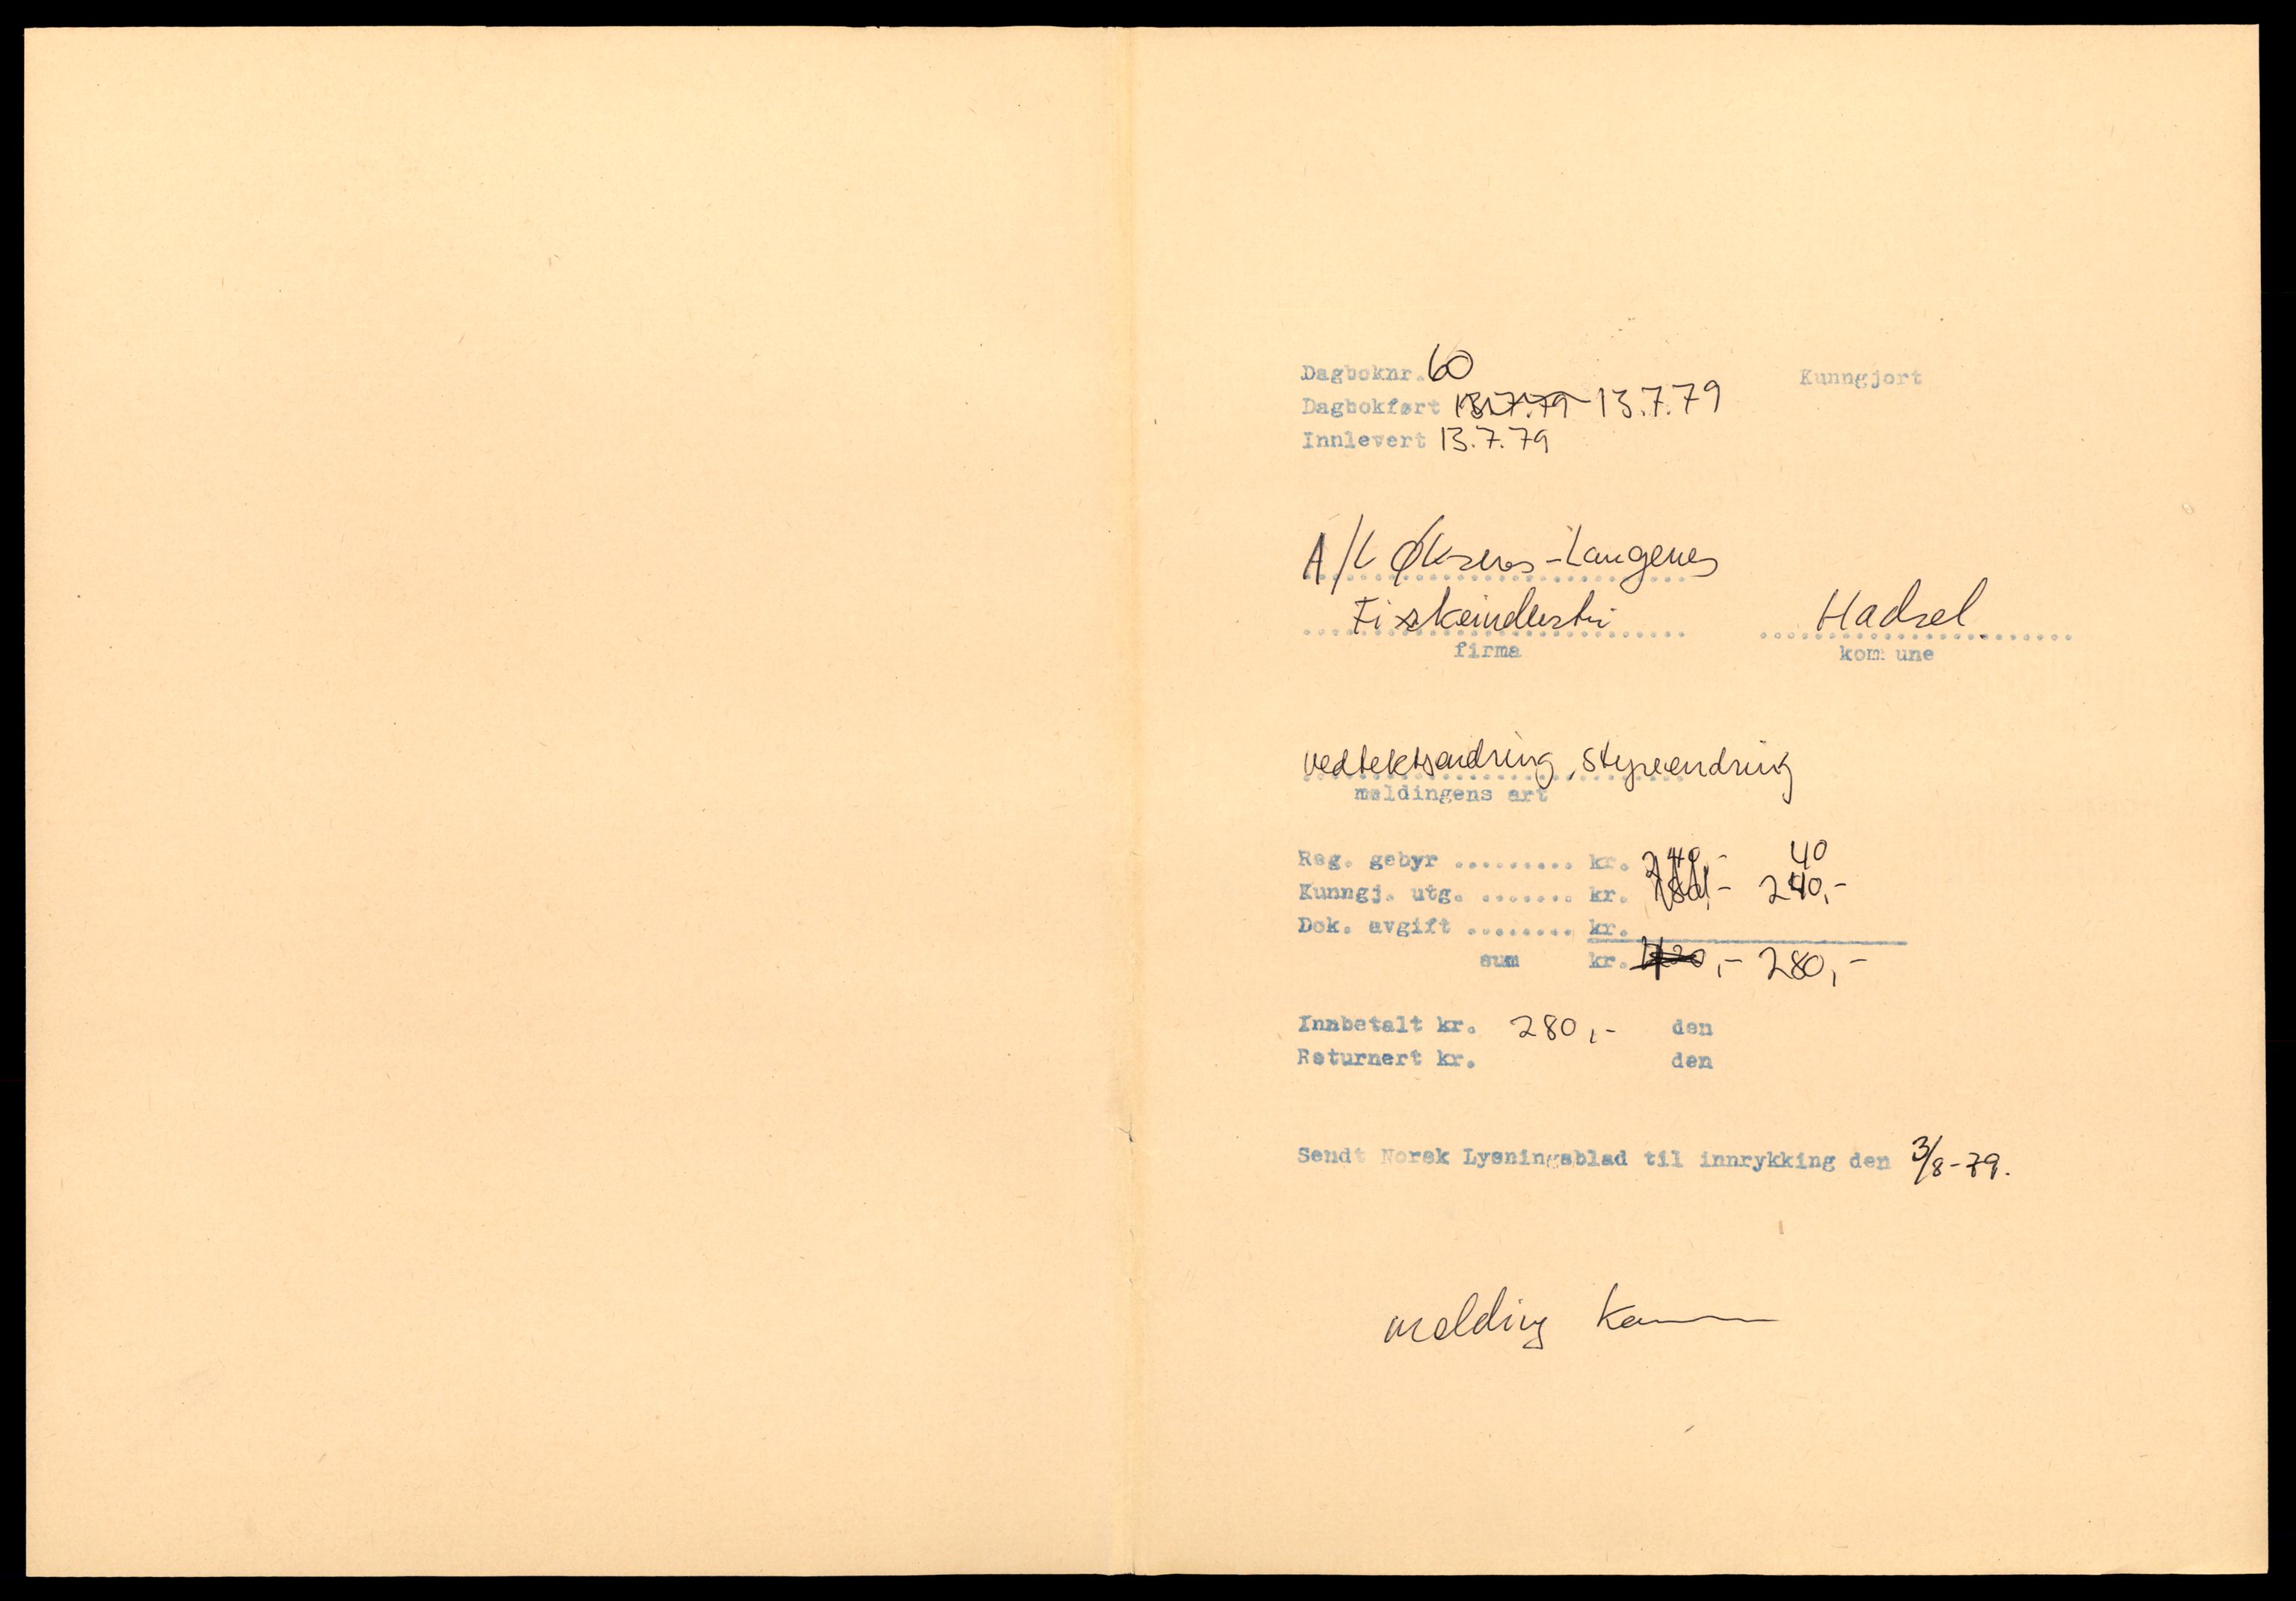 Dagboknr. 60
Kunngjort
Dagbokført 13.7.79 13.7.79
Innlevert 13.7.79
A/L Øksnes-Langenes
Fiskeindustri Hadsel
firma kommune
vedtektsendring, styreendring
meldingens art
Reg. gebyr ......... kr. 40
Kunngj. utg. ....... kr. 240,-
Dok. avgift ........ kr.
sum kr. 280,-
Innbetalt kr. 280,- den
Returnert kr. den
Sendt Norsk Lysningsblad til innrykking den 3/8-79.
melding